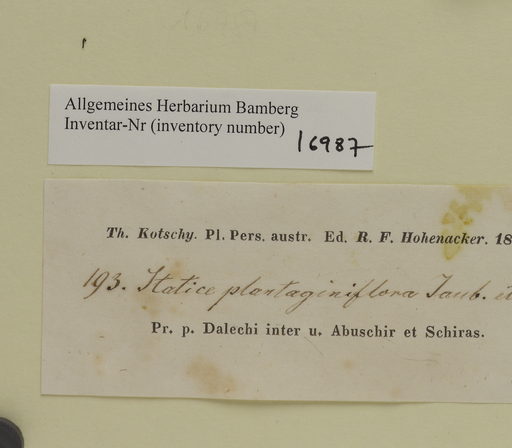 Allgemeines Herbarium Bamberg
Inventar-Nr (inventory number) 16987
Th. Kotschy. Pl. Pers. austr. Ed. R. F. Hohenacker. 18
193. Statice plantaginiflora Jaub. et
Pr. p. Dalechi inter u. Abuschir et Schiras.